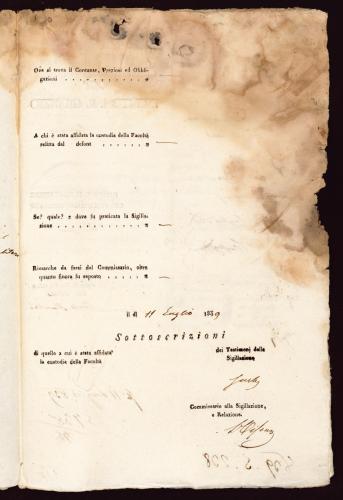 Ove si trova il Contante, Preziosi ed Obbli-
gazioni . . . . . . . . . . . . . "
A chi è stata affidata la custodia della Facoltà
relitta dal defont . . . . . . . . "
Se? quale? e dove fu praticata la Sigilla-
zione . . . . . . . . . . . . . "
Rimarche da farsi dal Commissario, oltre
quanto finora fu esposto . . . . . . "
il dì 11 Luglio 1839
Sottoscrizioni
di quello a cui è stata affidata
la custodia della Facoltà
dei Testimonj della
Sigillazione
Commissario alla Sigillazione,
e Relazione.